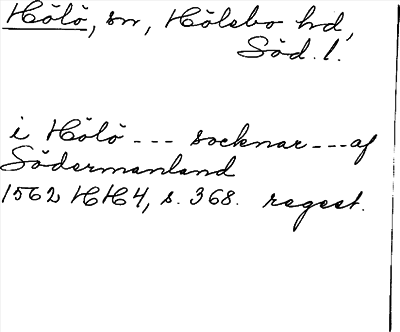 Hölö, sn, Hölebo hd,
Söd. l.
i Hölö --- socknar --- af
Södermanland
1562 HH4, s. 368. regest.